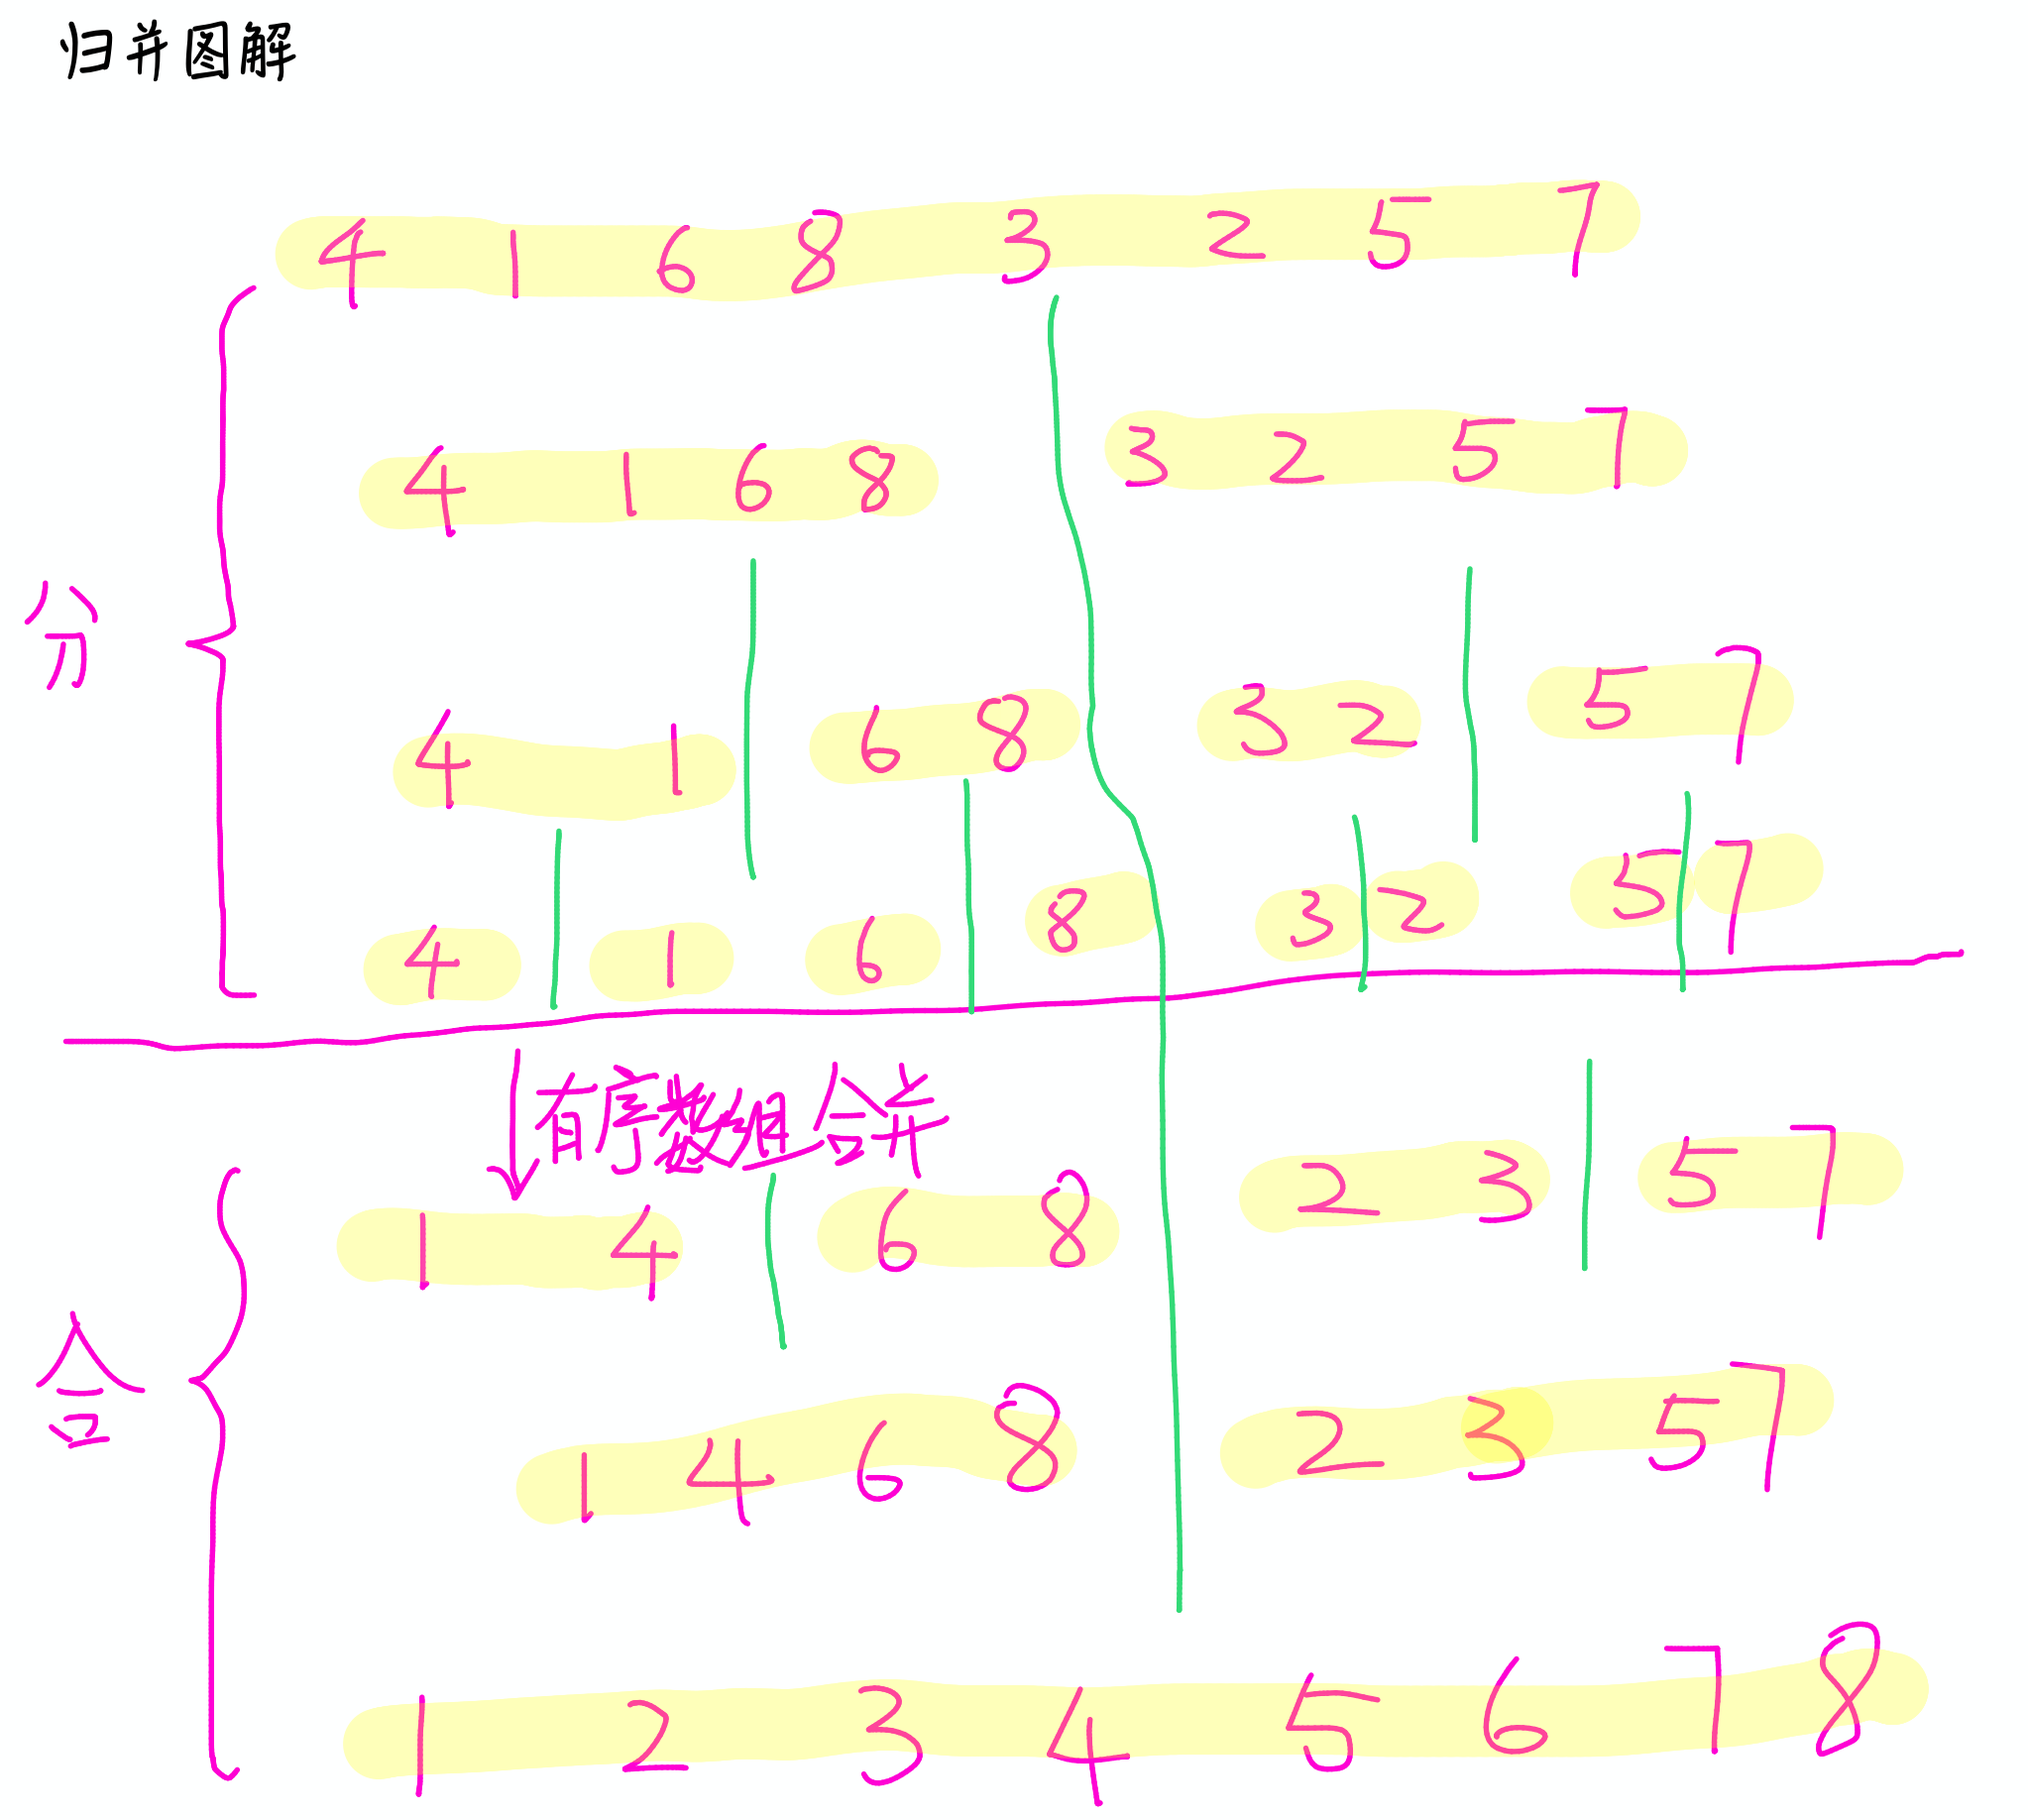 归并图解
4 1 6 8 3 2 5 7
4 1 6 8 3 2 5 7
分
4 1 6 8 3 2 5 7
4 1 6 8 3 2 5 7
有序数组合并
1 4 6 8 2 3 5 7
合
1 4 6 8 2 3 5 7
1 2 3 4 5 6 7 8